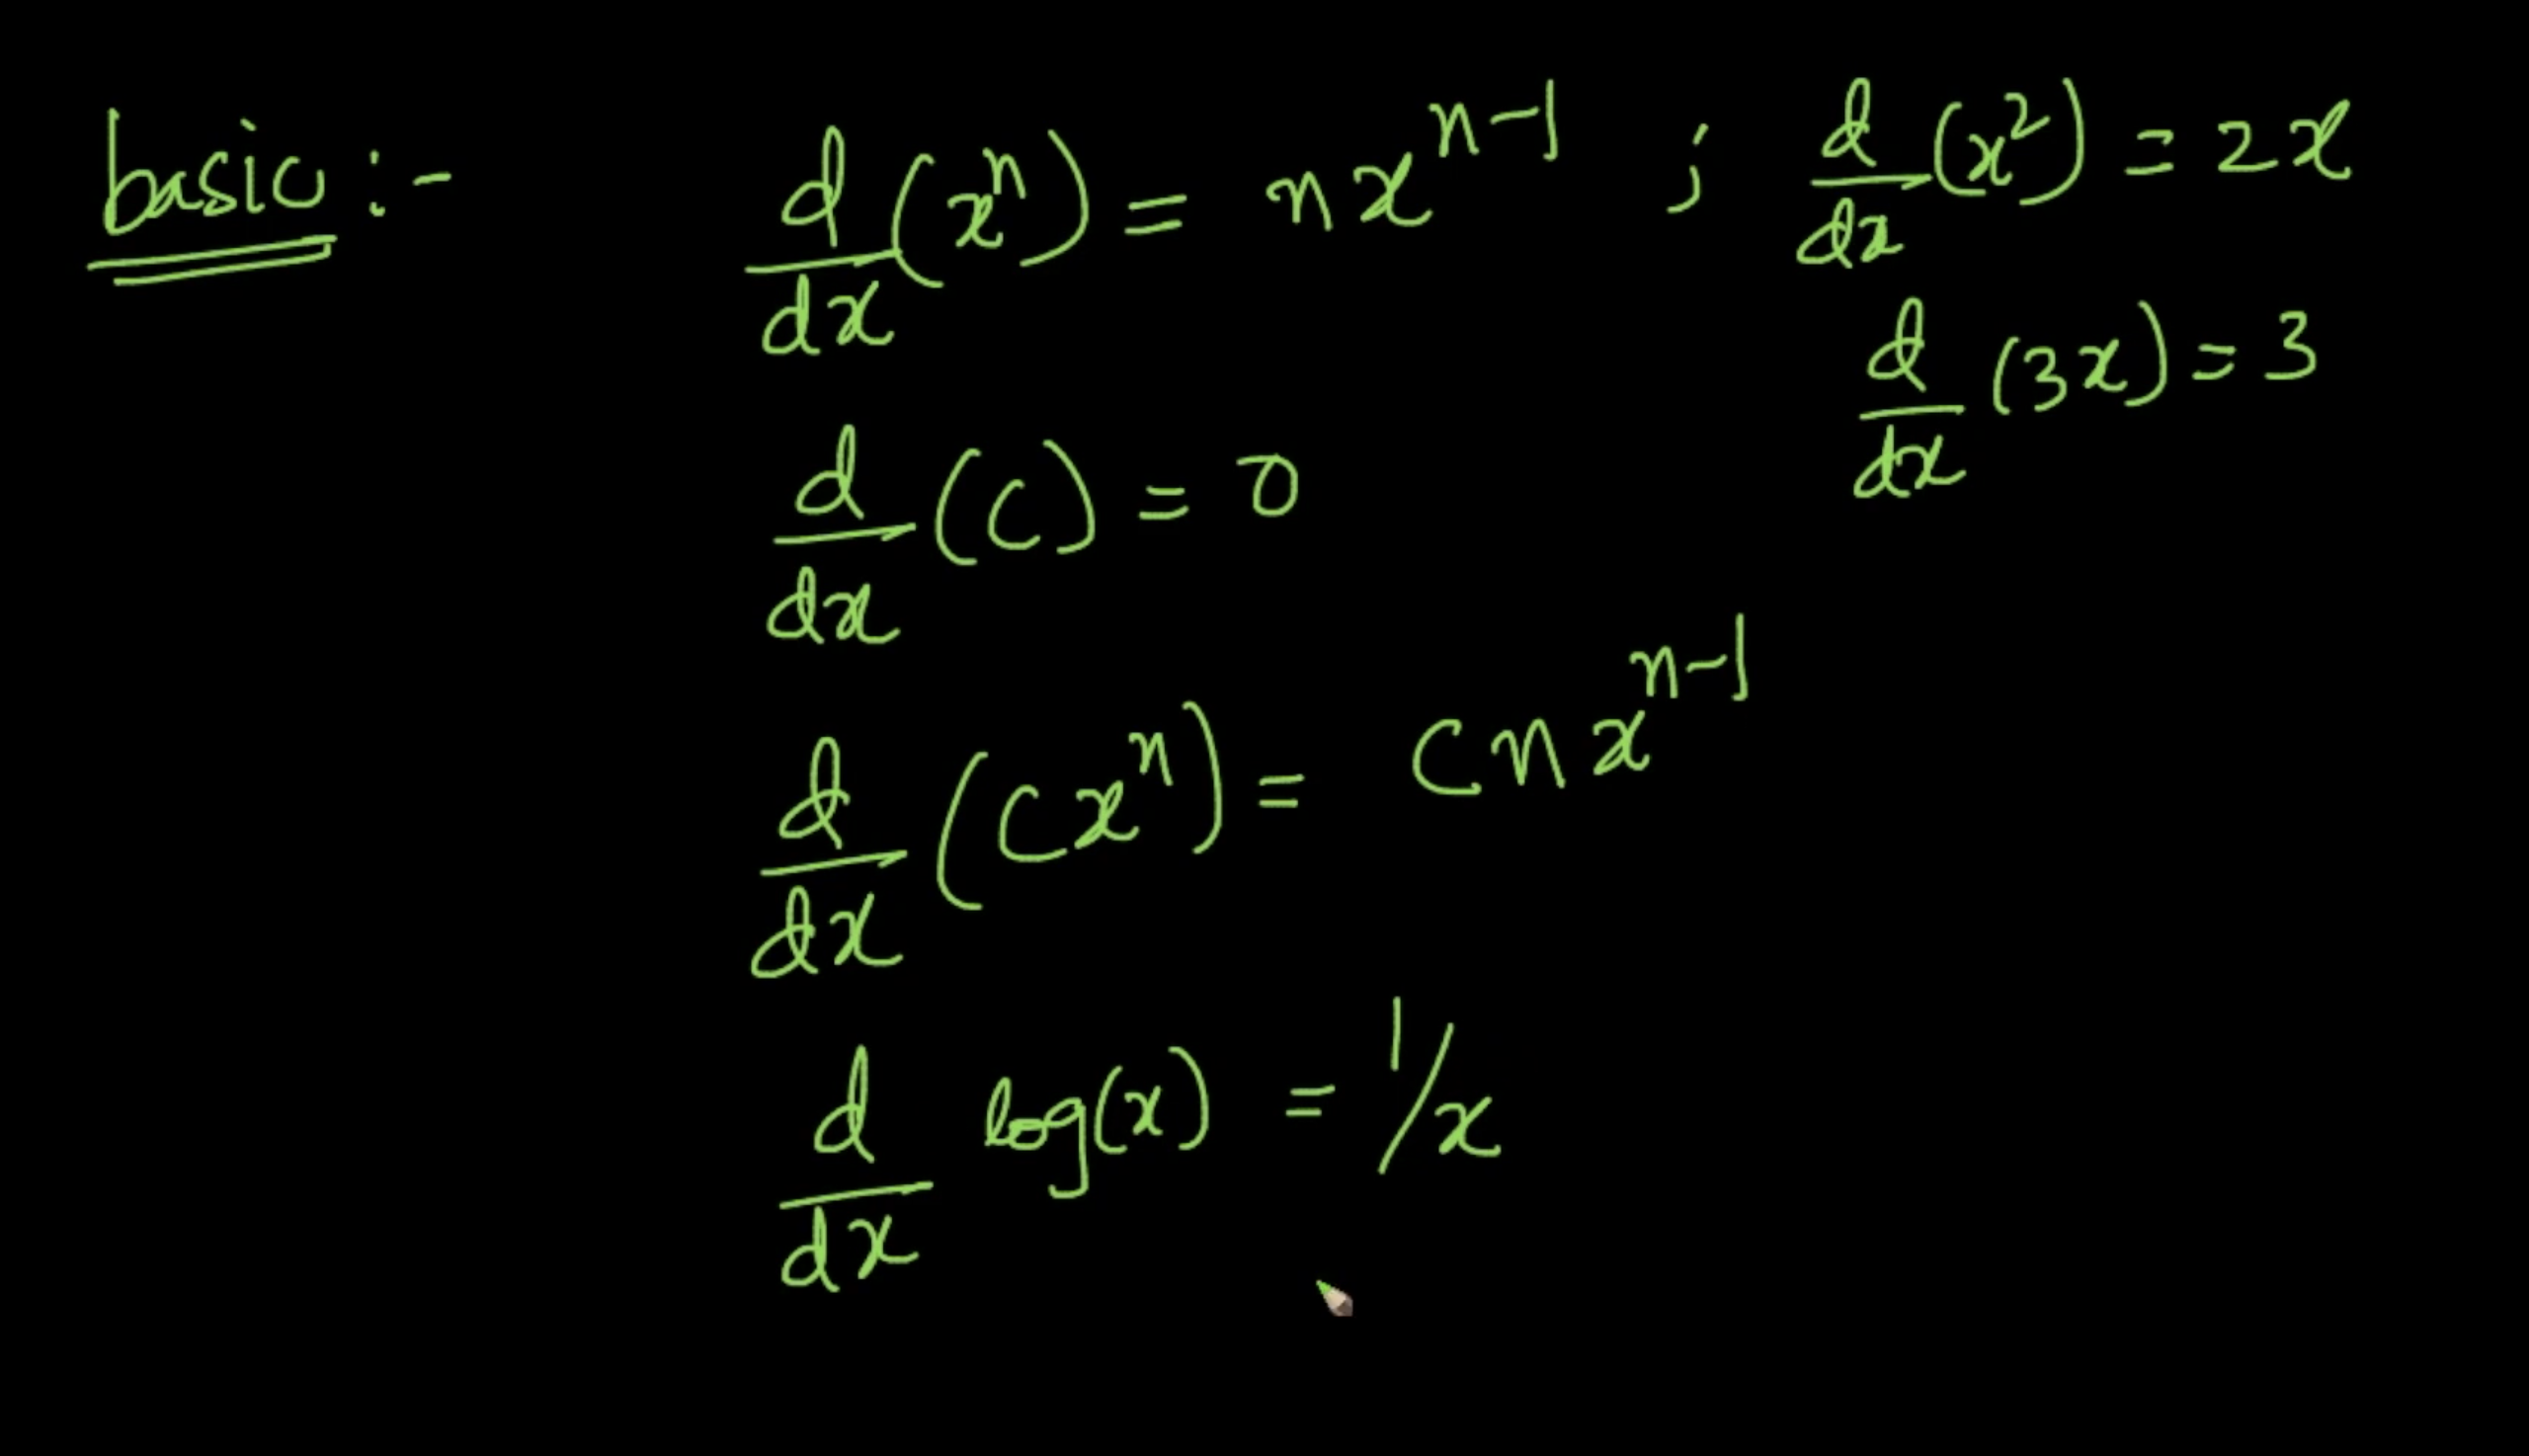 basic :- d/dx (xⁿ) = nxⁿ⁻¹ ; d/dx (x²) = 2x
d/dx (3x) = 3
d/dx (c) = 0
d/dx (cxⁿ) = cnxⁿ⁻¹
d/dx log(x) = 1/x